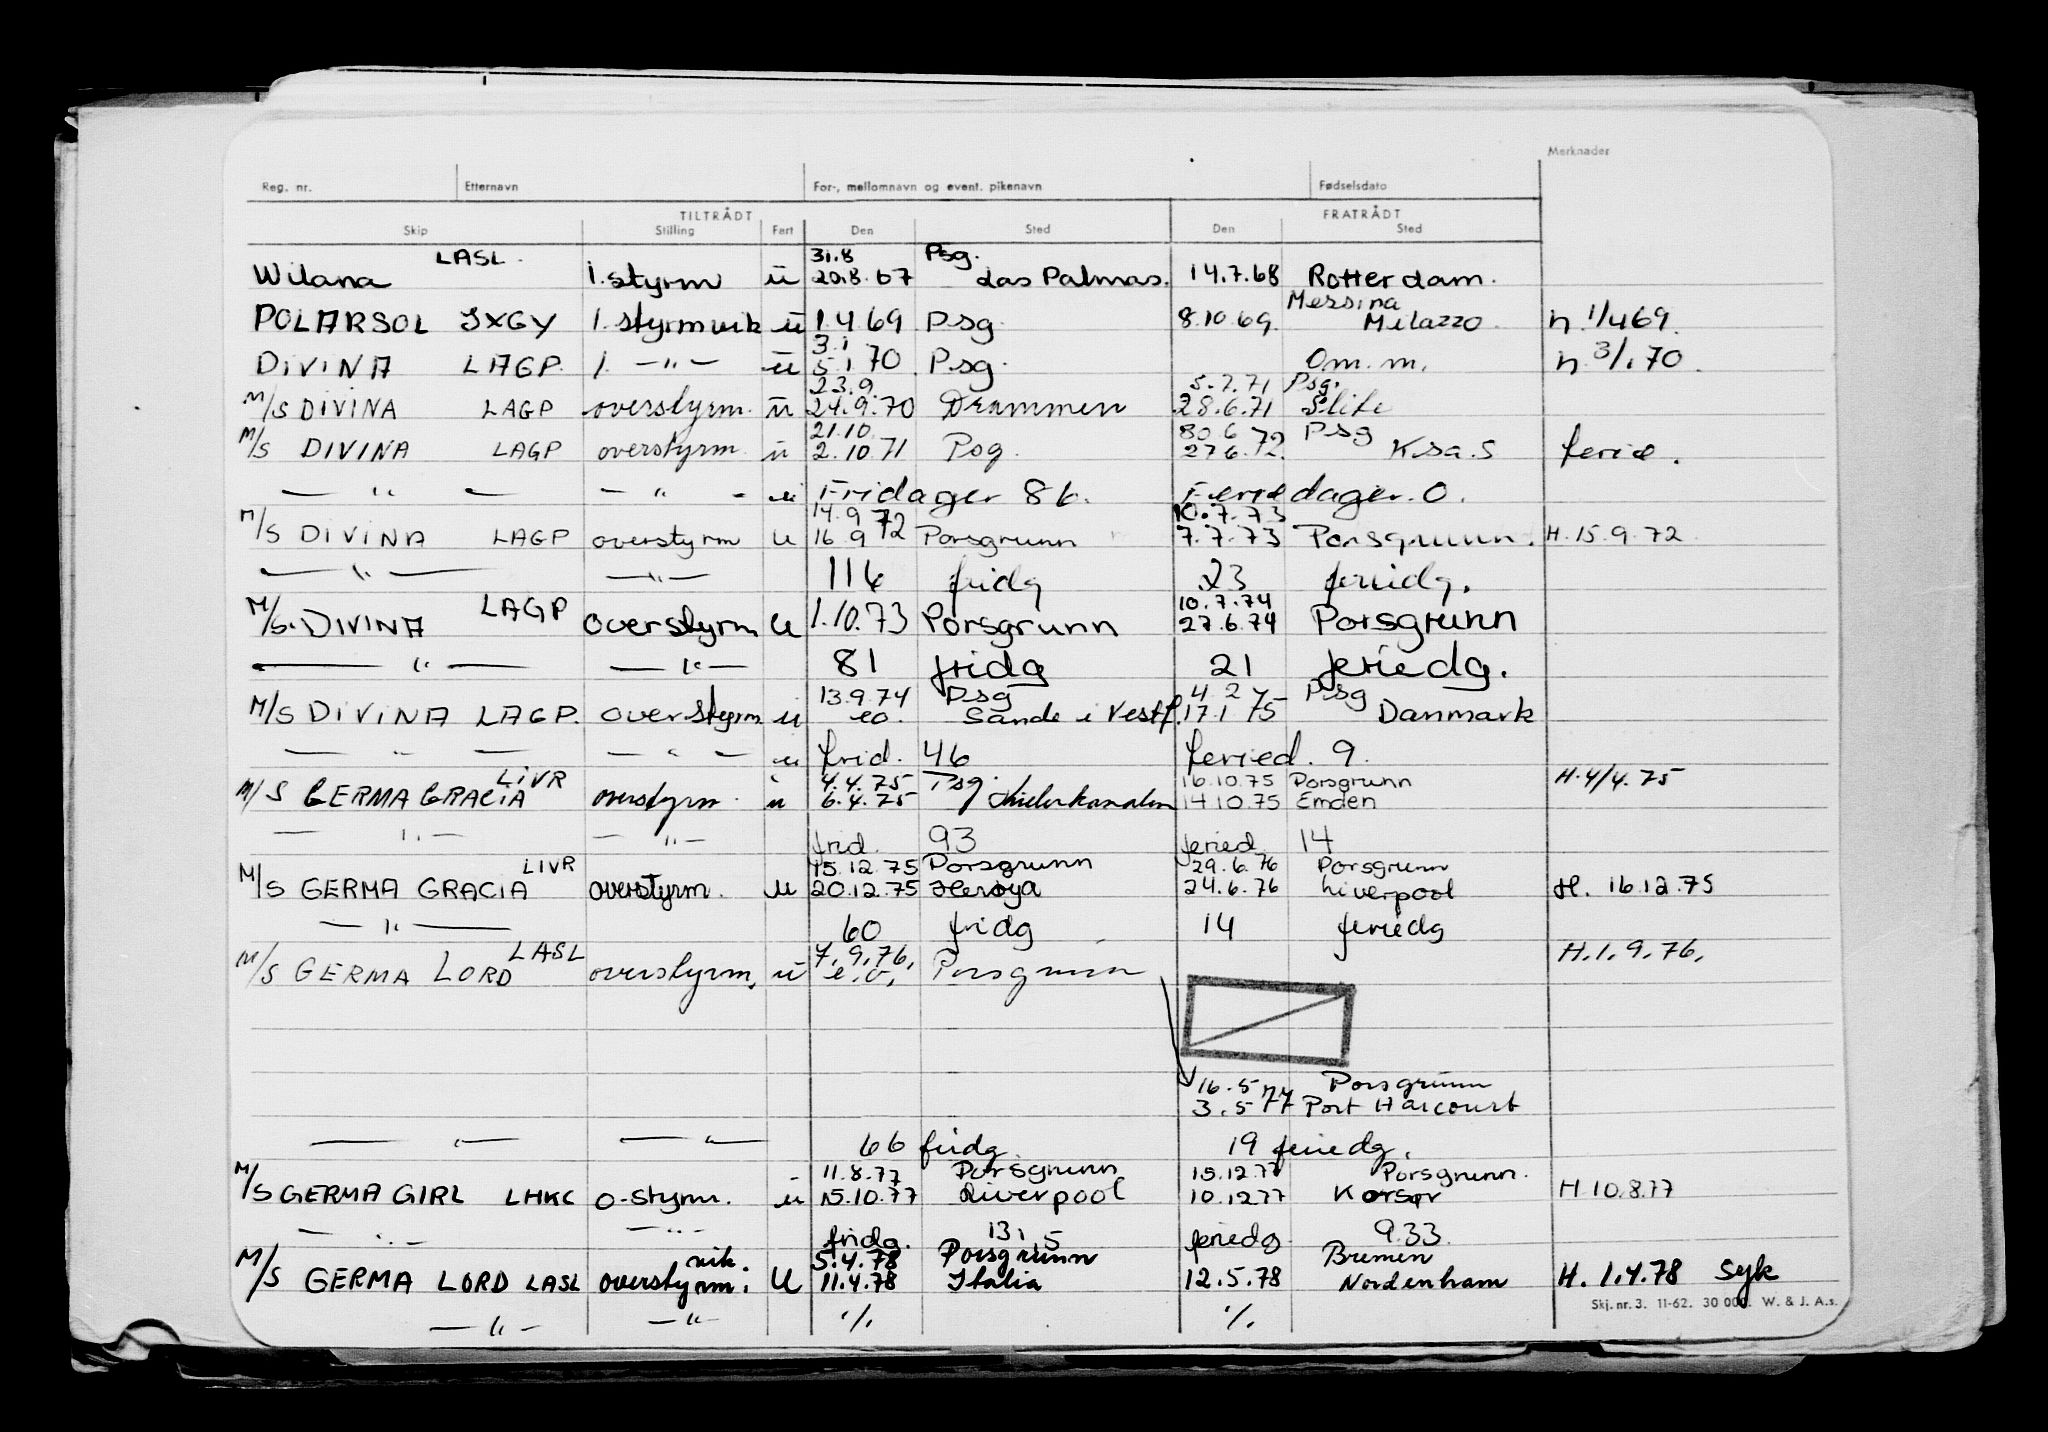 Merknader
Reg. nr. Etternavn For-, mellomnavn og event. pikenavn Fødselsdato
TILTRÅDT FRATRÅDT
Skip Stilling Fart Den Sted Den Sted
LASL. 31.8 Psg.
Wilana 1. styrm u 20.8.67 Las Palmas. 14.7.68 Rotterdam.
Messina
POLARSOL JXGY 1. styrm vik u 1.4 69 Psg 8.10.69. Milazzo. n. 1/4 69.
3.1
DIVINA LAGP. 1. —"— u 5.1 70 Psg. Om. m. n 3/1.70.
23.9. 5.7.71 Psg.
M/S DIVINA LAGP overstyrm. u 24.9.70 Drammen 28.6.71 Slite
21.10. 30.6 Psg
M/S DIVINA LAGP overstyrm. u 2.10.71 Psg. 27.6.72. Ksa. S ferie.
— " — — " - u Fridager 86. Feriedager. 0.
14.9 10.7.73
M/S DIVINA LAGP overstyrm u 16.9 72 Porsgrunn 7.7.73 Porsgrunn. H. 15.9.72
— " — —"— 116 fridg 23 feriedg.
LAGP 10.7.74
M/S. DIVINA overstyrm u 1.10.73 Porsgrunn 27.6.74 Porsgrunn
— " — — " — 81 fridg 21 feriedg.
13.9.74 Psg 4.2 Psg
M/S DIVINA LAGP. overstyrm u eo. Sande i Vestf. 17.1 75 Danmark
— " — — " — u frid. 46 feried. 9.
LIVR 4.4.75 Psg. 16.10.75 Porsgrunn H. 4/4.75
M/S GERMA GRACIA overstyrm. u 6.4.75 Kielerkanalen 14.10.75 Emden
— " — — " — frid. 93 feried. 14
LIVR 15.12.75 Porsgrunn 29.6.76 Porsgrunn
M/S GERMA GRACIA overstyrm. u 20.12.75 Herøya 24.6.76 Liverpool H. 16.12.75
— " — 60 fridg 14 feriedg
LASL 7.9.76. H. 1.9.76.
M/S GERMA LORD overstyrm. u e.o. Porsgrunn
16.5 Porsgrunn
3.5 77 Port Harcourt
— " — — " — 66 fridg. 19 feriedg.
11.8.77 Porsgrunn 15.12.77 Porsgrunn.
M/S GERMA GIRL LHKC o-styrm. u 15.10.77 Liverpool 10.12 77 Korsør H 10.8.77
— " — — " — fridg. 131,5 feriedg. 9.33.
vik. 5.4.78 Porsgrunn Bremen
M/S GERMA LORD LASL overstyrm. U 11.4.78 Italia 12.5.78 Nordenham H. 1.4.78 Syk
Skj. nr. 3. 11-62. 30 000. W. & J. A.s.
— " — — " — ·/. ·/.